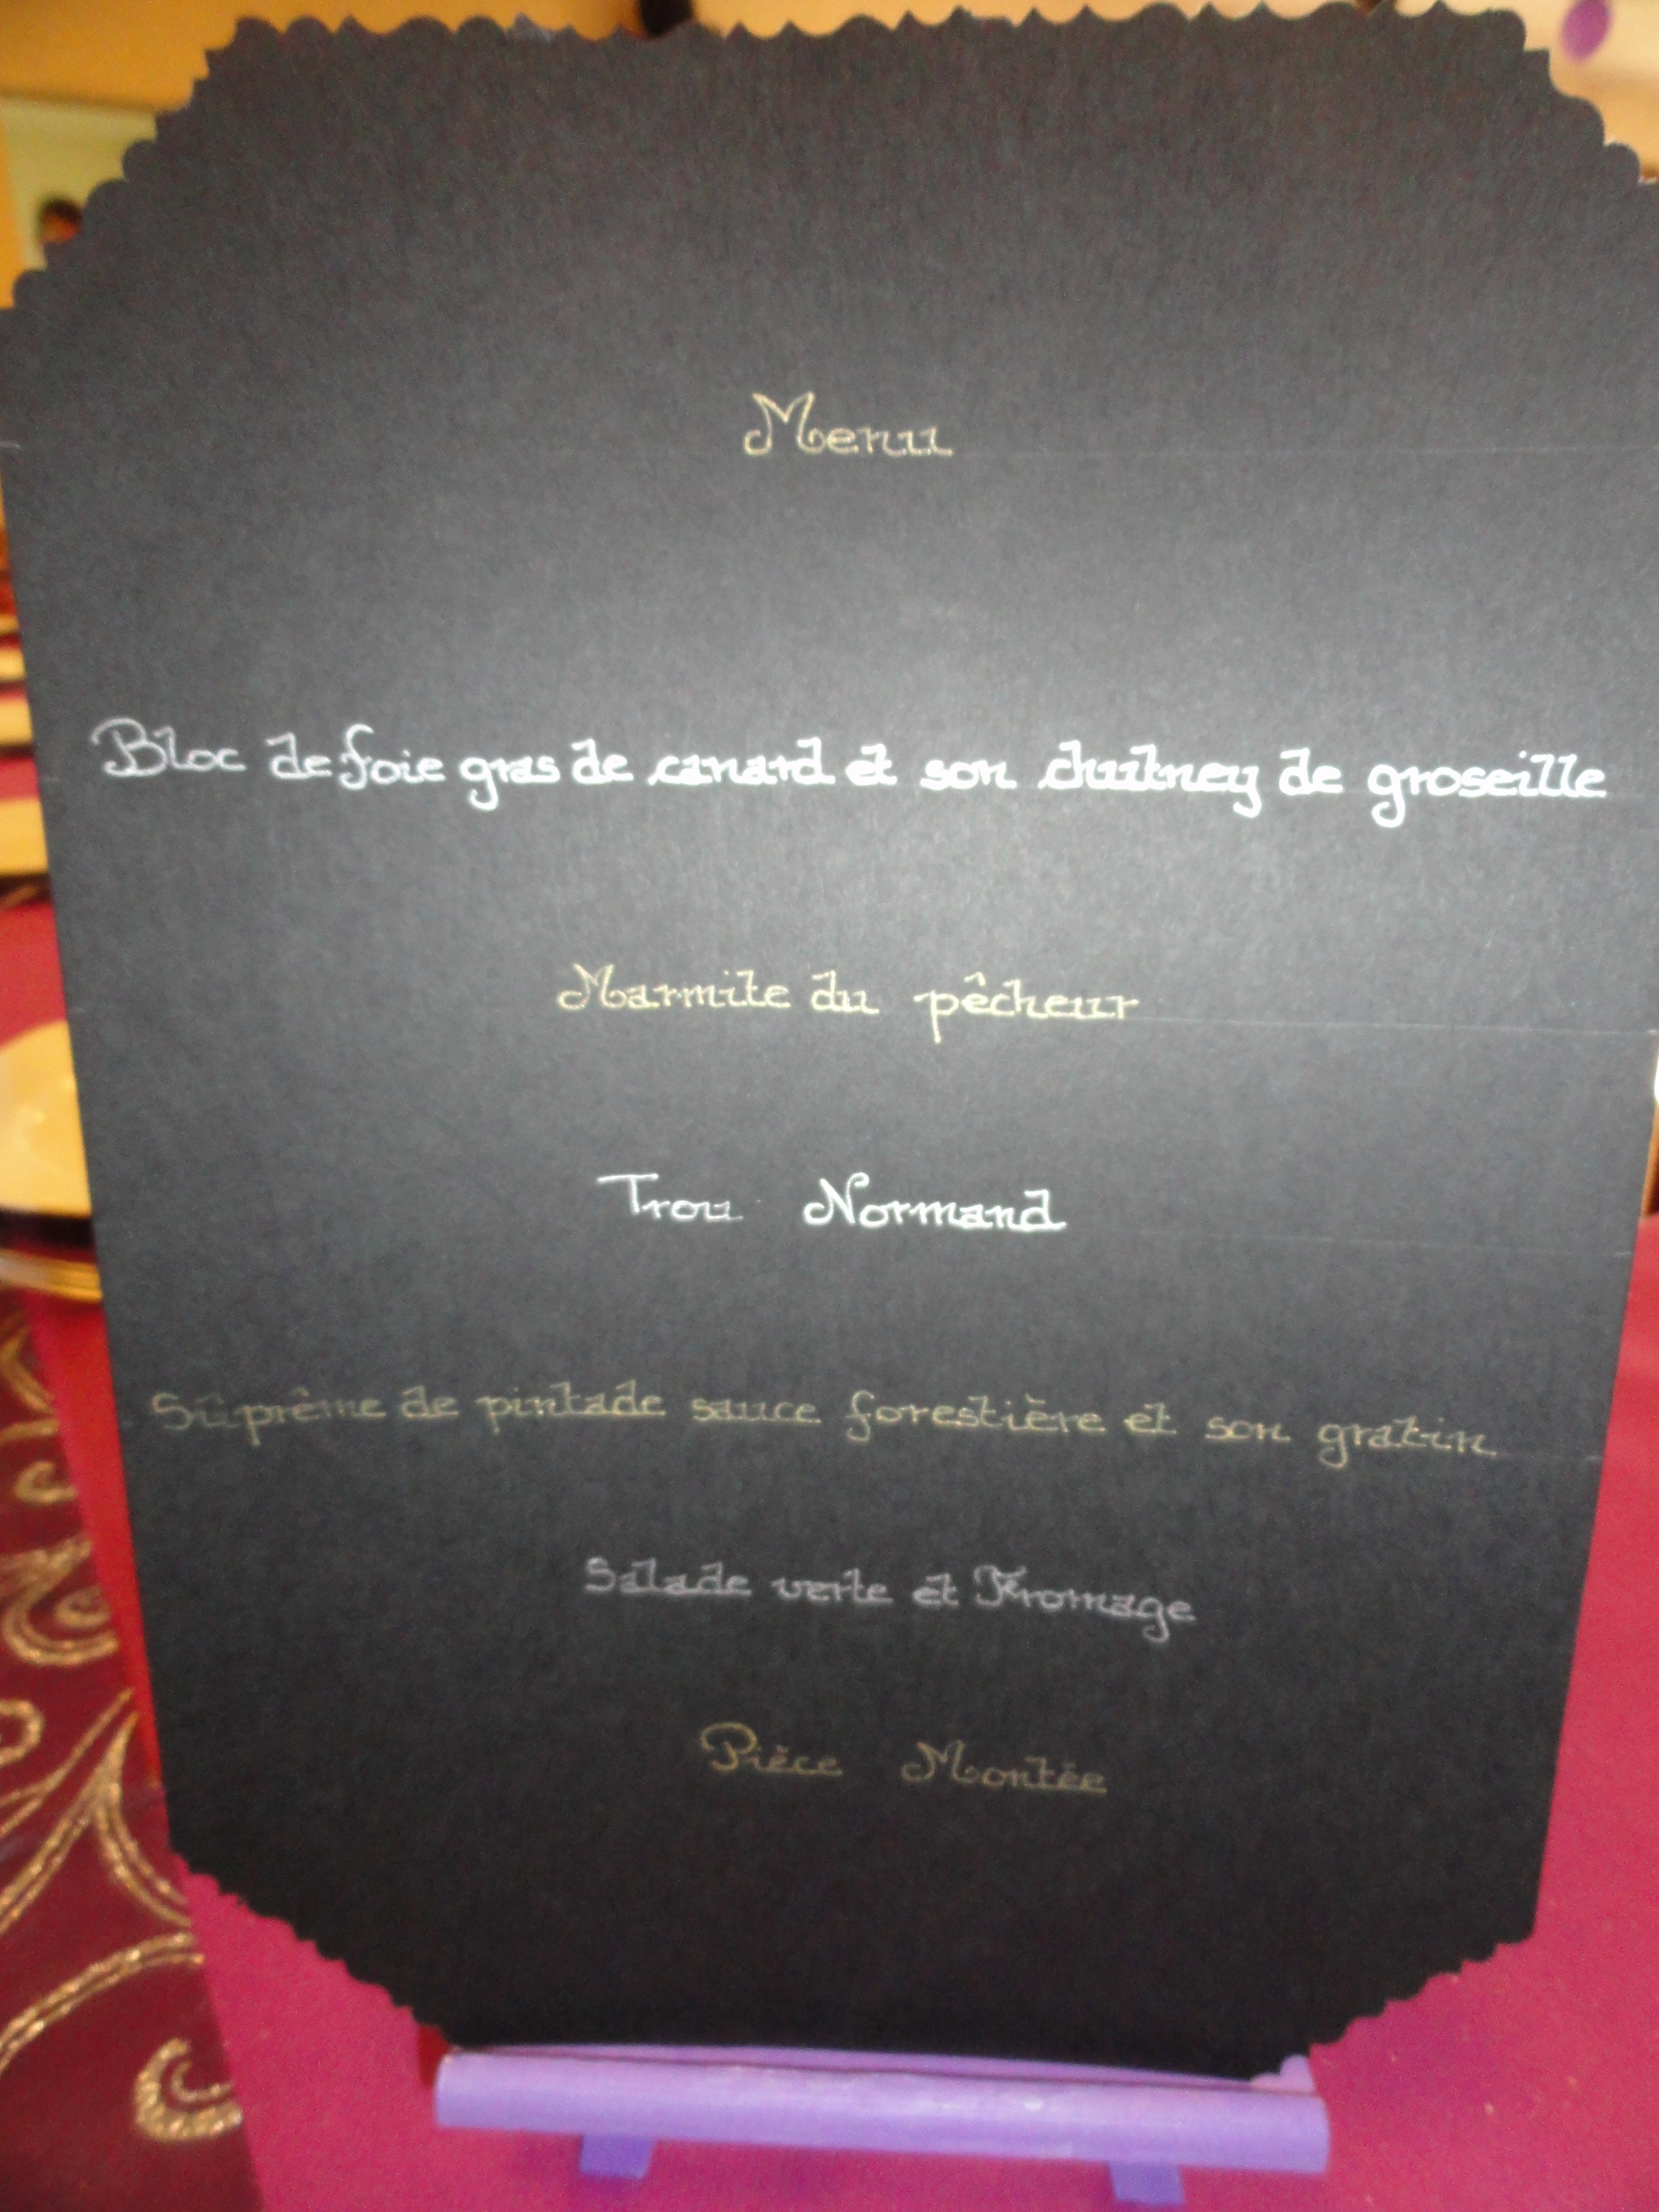 Menu
Bloc de foie gras de canard et son chutney de groseille
Marmite du pêcheur
Trou Normand
Sûprême de pintade sauce forestière et son gratin
Salade verte et Fromage
Pièce Montée